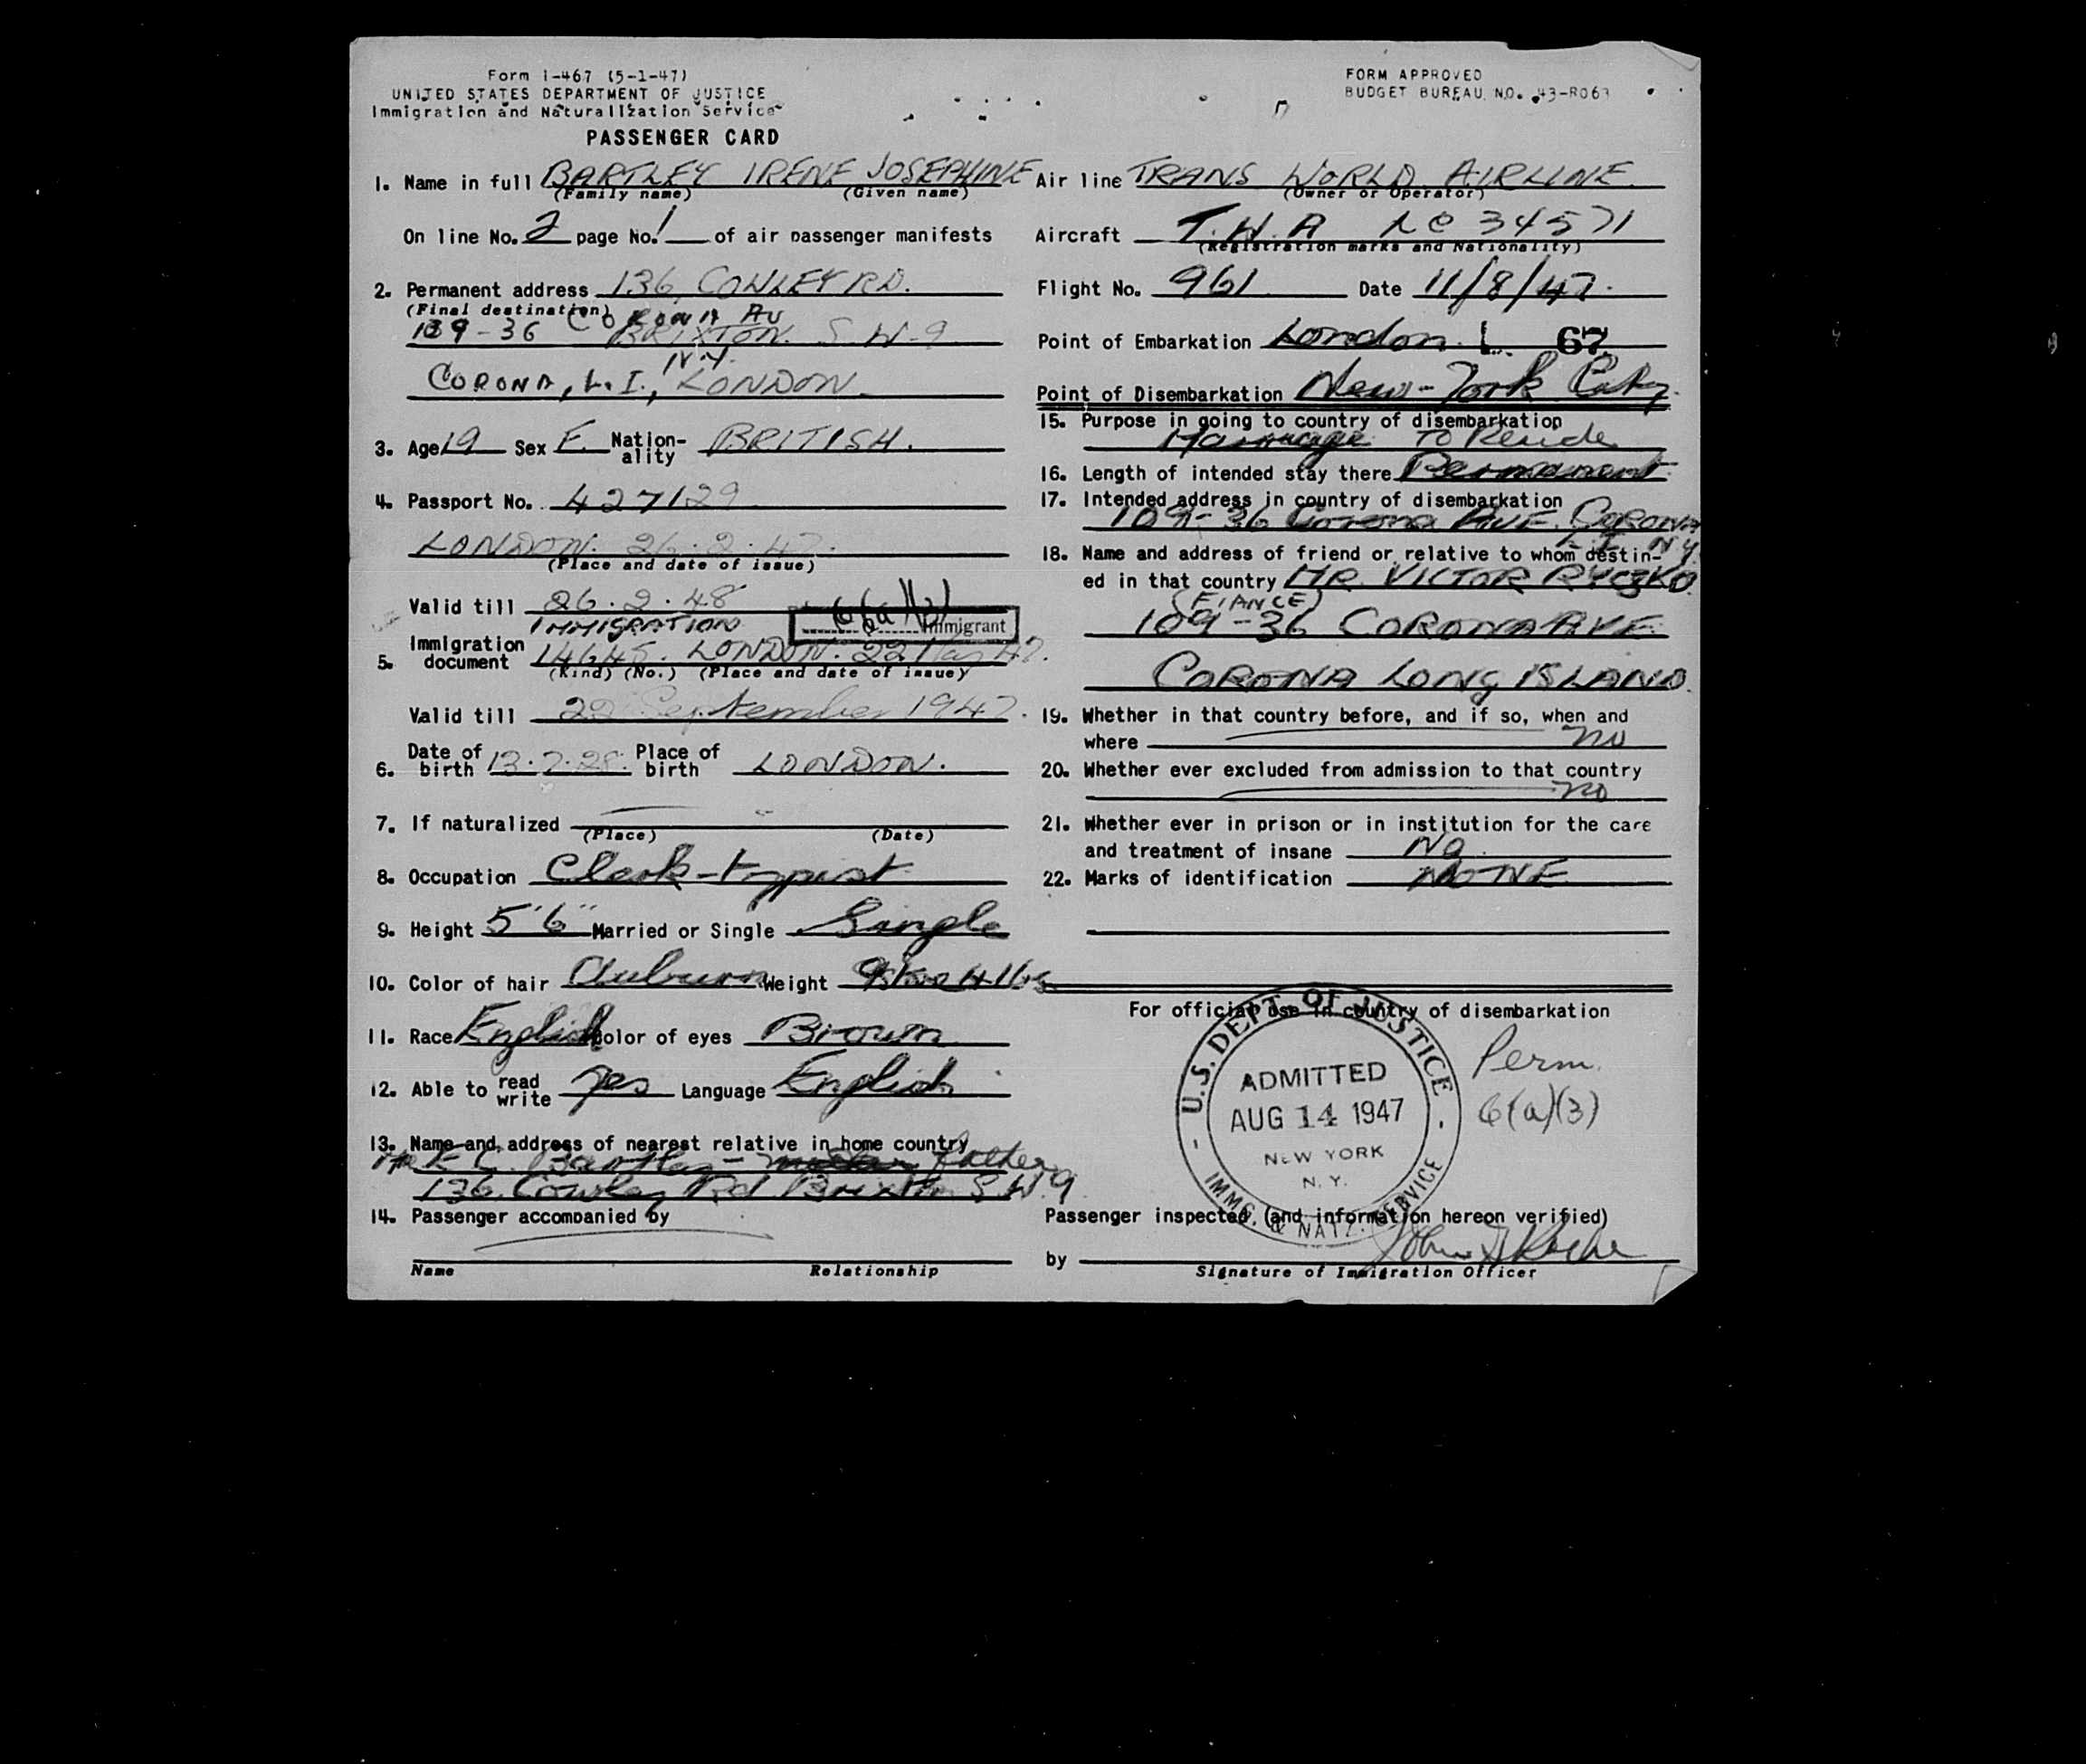 Form I-467 (5-1-47)
UNITED STATES DEPARTMENT OF JUSTICE
Immigration and Naturalization Service
PASSENGER CARD
FORM APPROVED
BUDGET BUREAU NO. 43-R063
1. Name in full BARTLEY IRENE JOSEPHINE
(Family name) (Given name)
On line No. 2 page No. 1 of air passenger manifests
2. Permanent address 136, COWLEY RD.
(Final destination) Corona Av
109-36 BRIXTON. S.W.9
N.Y.
CORONA, L.I., LONDON
3. Age 19 Sex F. Nation-ality BRITISH.
4. Passport No. 427129
LONDON. 26.2.47.
(Place and date of issue)
Valid till 26.2.48
6(a)(3) Immigrant
IMMIGRATION
5. Immigration document 14645. LONDON. 22 May 47.
(Kind) (No.) (Place and date of issue)
Valid till 22 September 1947.
6. Date of birth 13.7.28. Place of birth LONDON.
7. If naturalized
(Place) (Date)
8. Occupation Clerk-typist
9. Height 5'6" Married or Single Single
10. Color of hair Auburn Weight 9st 4 lbs
11. Race English Color of eyes Brown
12. Able to read write yes Language English
13. Name and address of nearest relative in home country
Bartley - mother father
136 Cowley Rd Brixton S.W.9
14. Passenger accompanied by
Name Relationship
Air line TRANS WORLD AIRLINE.
(Owner or Operator)
Aircraft T.W.A NC 34571
(Registration marks and Nationality)
Flight No. 961 Date 11/8/47.
Point of Embarkation London L. 67
Point of Disembarkation New-York City
15. Purpose in going to country of disembarkation
Marriage To Reside
16. Length of intended stay there Permanent
17. Intended address in country of disembarkation
109-36 Corona AVE. CORONA
L.I. N.Y.
18. Name and address of friend or relative to whom destin-
ed in that country MR. VICTOR RYCZKO.
(FIANCE)
109-36 CORONA AVE.
CORONA LONG ISLAND.
19. Whether in that country before, and if so, when and
where no
20. Whether ever excluded from admission to that country
no
21. Whether ever in prison or in institution for the care
and treatment of insane No.
22. Marks of identification NONE
For official use in country of disembarkation
U.S. DEPT. OF JUSTICE
ADMITTED
AUG 14 1947
NEW YORK
N.Y.
IMMG. & NATZ. SERVICE
Perm.
6(a)(3)
Passenger inspected, (and information hereon verified)
by John
Signature of Immigration Officer